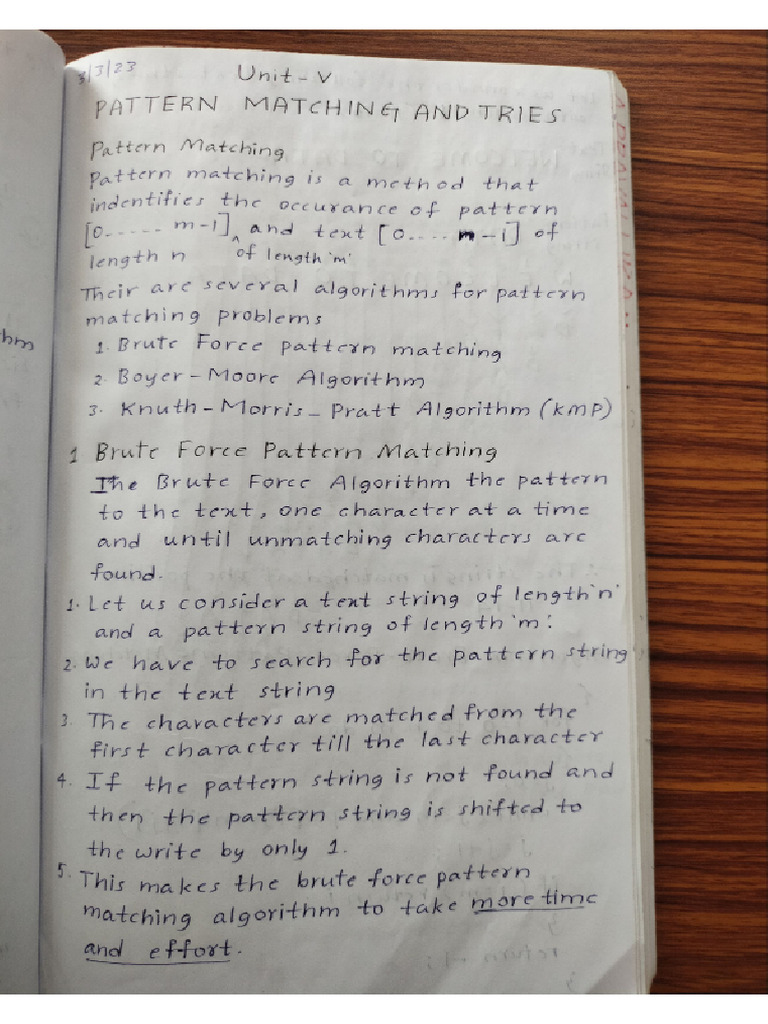 3/3/23 Unit - V
PATTERN MATCHING AND TRIES
Pattern Matching
Pattern matching is a method that
indentifies the occurance of pattern
[0..... m-1]^ and text [0.... n-1] of
length n of length 'm'
Their are several algorithms for pattern
matching problems
1. Brute Force pattern matching
2. Boyer - Moore Algorithm
3. Knuth - Morris - Pratt Algorithm (kmp)
1 Brute Force Pattern Matching
The Brute Force Algorithm the pattern
to the text, one character at a time
and until unmatching characters are
found.
1. Let us consider a text string of length 'n'
and a pattern string of length 'm'.
2. We have to search for the pattern string
in the text string
3. The characters are matched from the
first character till the last character
4. If the pattern string is not found and
then the pattern string is shifted to
the write by only 1.
5. This makes the brute force pattern
matching algorithm to take more time
and effort.